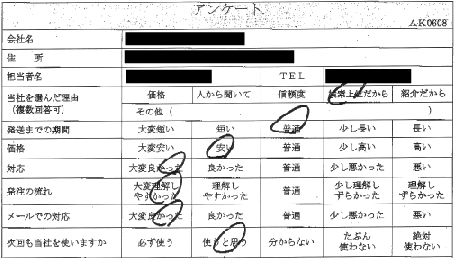 アンケート
LK0608
会社名
住 所
担当者名 TEL
当社を選んだ理由 価格 人から聞いて 信頼度 検索上位だから 紹介だから
(複数回答可) その他( )
発送までの期間 大変短い 短い 普通 少し長い 長い
価格 大変安い 安い 普通 少し高い 高い
対応 大変良かった 良かった 普通 少し悪かった 悪い
発注の流れ 大変理解しやすかった 理解しやすかった 普通 少し理解しずらかった 理解しずらかった
メールでの対応 大変良かった 良かった 普通 少し悪かった 悪い
次回も当社を使いますか 必ず使う 使うと思う 分からない たぶん使わない 絶対使わない